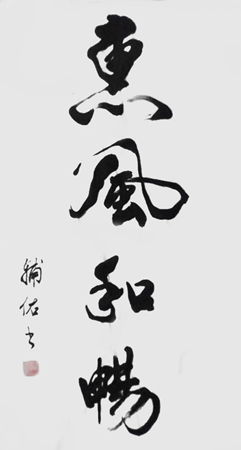 惠風和暢
輔佑书